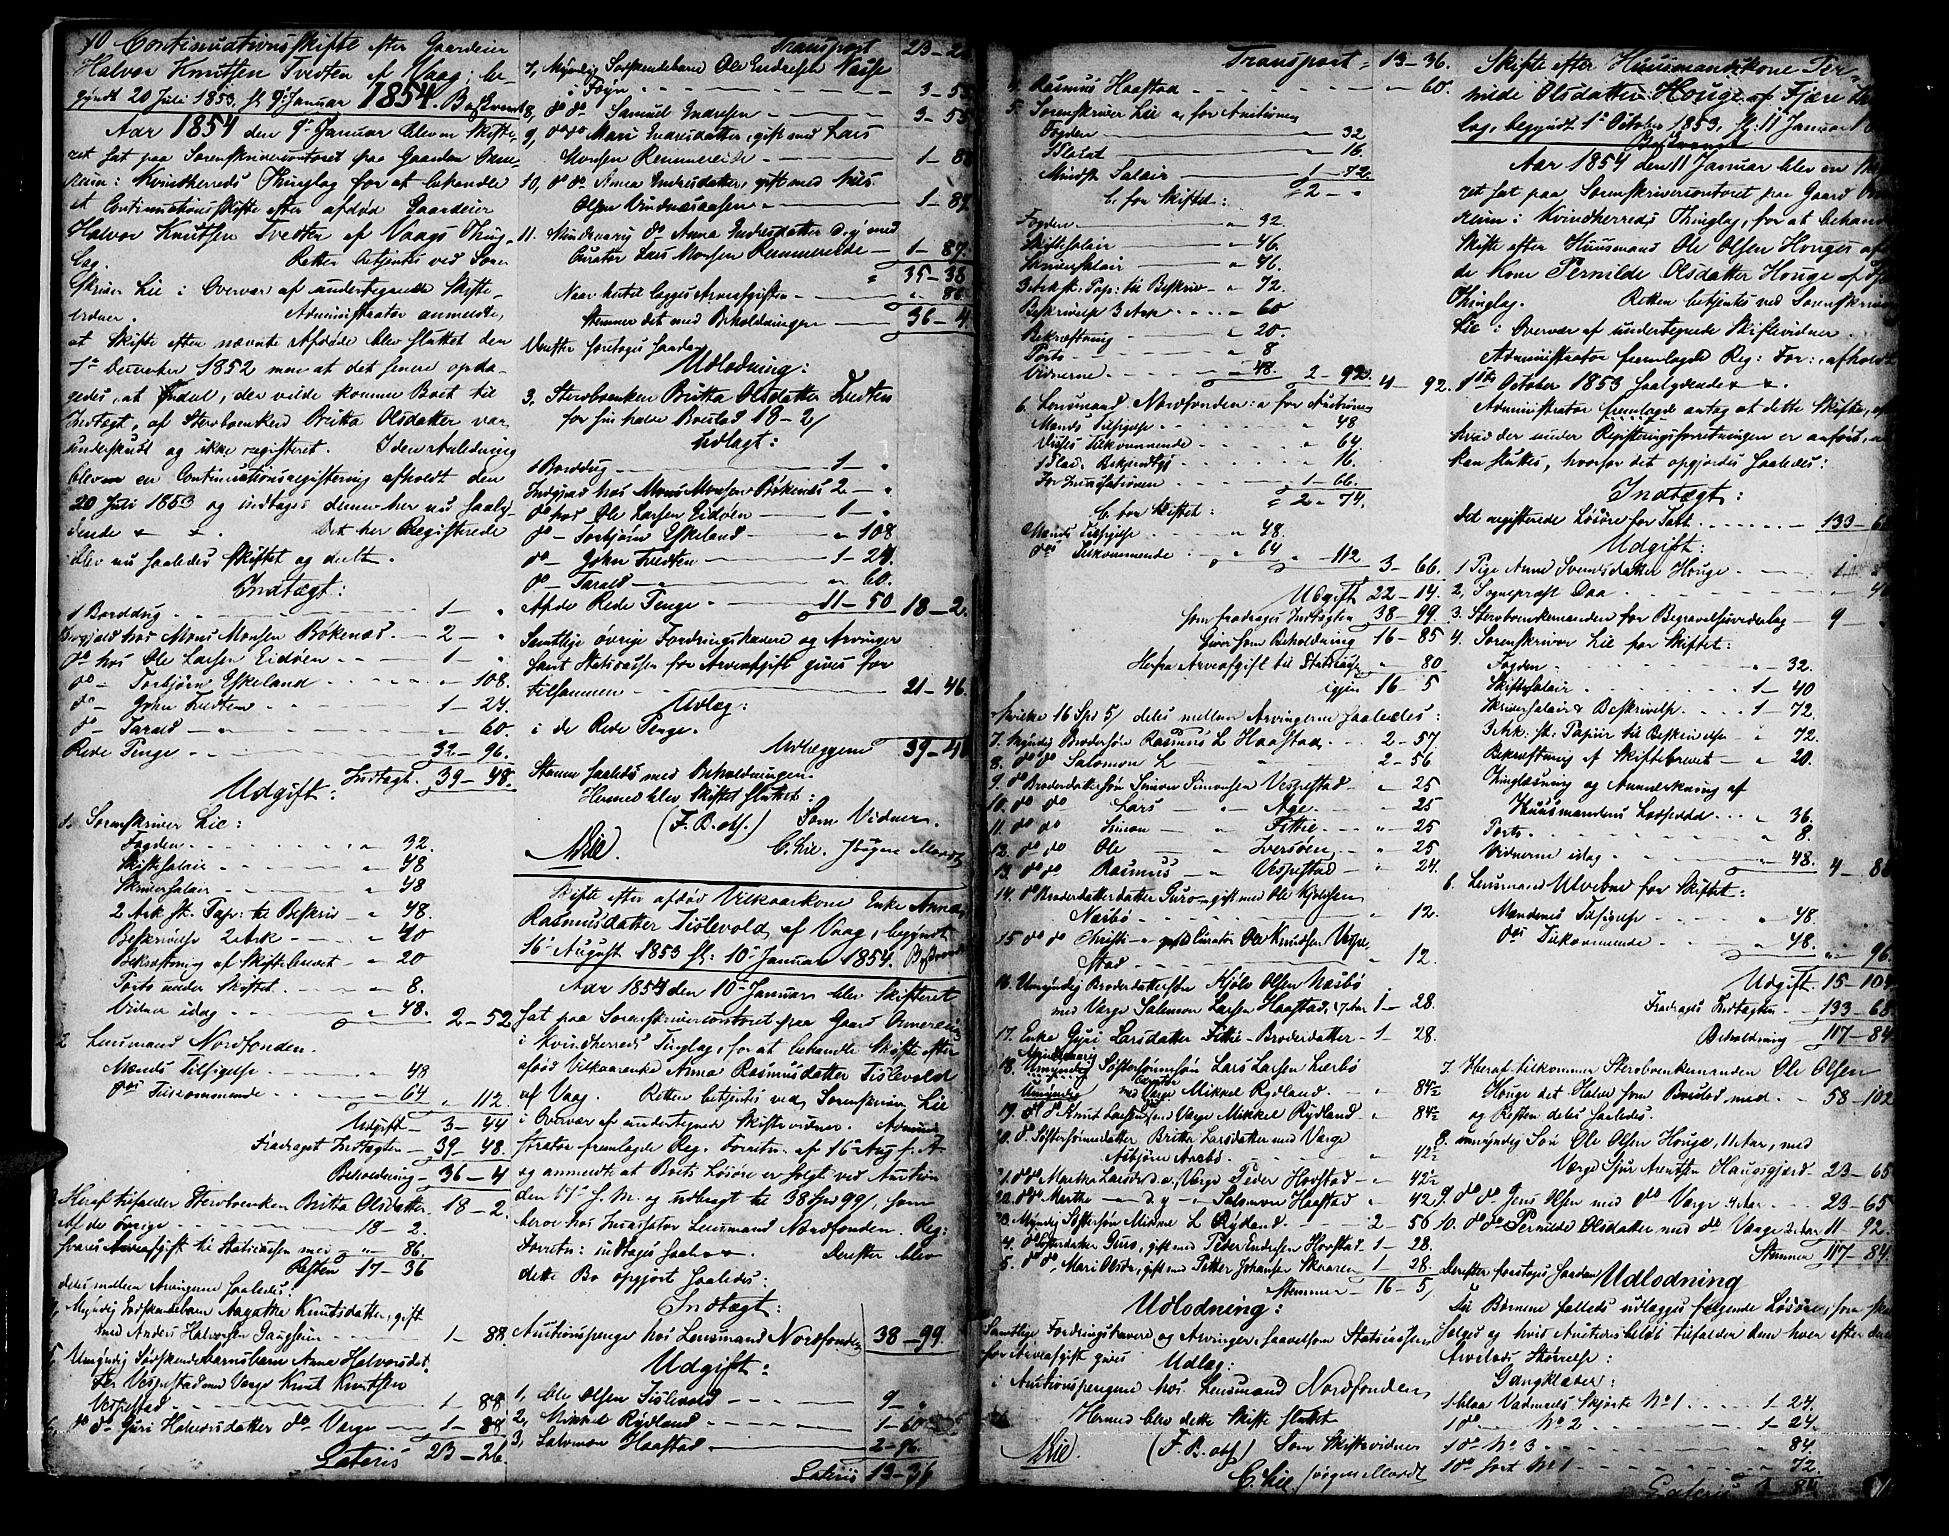 10 Continuationsskifte efter Gaardeier
Halvor Knutsen Tvedten af Vaag, be-
gyndt 20 Juli 1853, sl. 9' Januar 1854. Beskrevet
Aar 1854 den 9' Januar blev en Skifte-
ret sat paa Sorenskrivercontoret paa Gaarden
i Kvindherreds Thinglag for at behandle
et Continuationsskifte efter afdød Gaardeier
Halvor Knutsen Tvedten af Vaags Thing-
lag. Retten betjentes ved Soren
skriver Lie i Overvær af undertegnede Skifte-
vidner. Administrator anmeldte,
at Skifte efter nævnte Afdøde blev sluttet den
1' December 1852 men at det senere opda-
gedes, at Endel, der vilde komme Boet til
Indtægt, af Sterboenken Britta Olsdatter var
underskudt og ikke registreret. I den Anledning
blev en Continuationsregistrering afholdt den
20 Juli 1853 og indtages denne her nu saaly-
dende &c &c. Det her Registrerede
blev nu saaledes skiftet og deelt.
Indtægt:
1 Borddug 1 — "
Indgjeld hos Mons Monsen Bökenæs 2 — "
do hos Ole Larsen Eidöen 1 — "
do — Torbjörn Eskeland " — 108.
do — John Tvedten 1 — 24.
do — Tarald " — 60.
Rede Penge 32 — 96.
Indtægt. 39 — 48.
Udgift:
1. Sorenskriver Lie:
Fogden " 32.
Skiftesalair " 48
Skriversalair " 48
2 Ark st. Pap: til Beskriv " 48.
Beskrivelse 2 Ark " 40
Bekræftning af Skiftebrevet " 20
Porto under Skiftet " 8.
Vidner idag " 48. 2 — 52
2 Lensmand Nordfonden.
Mænds Tilsigelse 48
do Tilkommende 64 " 112.
Udgift 3 — 44
Fradraget Indtægten 39 — 48.
Beholdning 36 — 4
3 Heraf tilfalder Sterboenken Britta Olsdatter 18 — 2.
Af de övrige 18 — 2.
svares Arveafgift til Statscassen med " 86.
Resten 17 — 36
deles mellem Arvingerne saaledes:
4, Myndig Södskendebarn Aagatha Knutsdatter, gift
med Anders Halvorsen Gaugstein 1 — 88.
5, Umyndig Södskendebarnsbarn Anna Halvorsdat-
ter Vespestad med Værge Knut Knutsen
Vespestad 1 — 88
6, do do Guri Halvorsdatter do Værge 1 — 88
Lateris 23 — 26.
Transport 23 — 26
7, Myndig Södskendebarn Ole Endresen Næsse
i Fogn 3 — 55
8, do do Samuel Endresen 3 — 55
9, do do Mari Endresdatter, gift med Lars
Monsen Remmereide 1 — 88
10, do do Anna Endresdatter, gift med Nils
Olsen 1 — 87.
11. Mindreaarig do Anna Endresdatter d: y: med
Curator Lars Monsen Remmereide 1 — 87.
35 — 38
Naar hertil lægges Arveafgiften " 86.
Stemmer det med Beholdningen 36 — 4
Derefter foretoges saadan
Udlodning:
3. Sterboenken Britta Olsdatter Tvedten
for sin halve Boeslod 18 — 2/
Udlagt:
1 Borddug 1 — "
Indgjæld hos Mons Monsen Bökenæs 2 — "
do hos Ole Larsen Eidöen 1 — "
do — Torbjörn Eskeland " 108
do — John Tvedten 1 — 24.
do — Tarald " 60.
Af de Rede Penge 11 — 50 18 — 2.
Samtlige övrige Fordringshavere og Arvinger
samt Statscassen for Arveafgift gives for
tilsammen 21 — 46.
Udlæg:
i de Rede Penge.
Udlæggene 39 — 48
Stemme saaledes med Beholdningen.
Hermed blev Skiftet sluttet:
(F. B. obs.) Som Vidner.
ALie. C. Lie. Jögen Mardt
Skifte efter afdöd Vilkaarkone Enke Anna
Rasmusdatter Tislevold, af Vaag, begyndt
16' August 1853 sl: 10' Januar 1854. Beskrevet
Aar 1854 den 10' Januar blev Skifteret
sat paa Sorenskrivercontoret paa Gaard
i Kvindherreds Tinglag, for at behandle Skifte efter
afdöd Vilkaarenke Anna Rasmusdatter Tislevold
af Vaag. Retten betjentes ved Sorenskriver Lie
i Overvær af undertegnede Skiftevidner. Admini-
strator fremlagde Reg. Forretn. af 16' Aug f. A.
og anmeldte at Boets Lösöre er solgt ved Auction
den 17' s. M. og udbragt til 38 Spd 99/, som
beroe hos Incassator Lensmand Nordfonden. Reg:
Forretn: indtages saal &c. Derefter blev
dette Bo opgjort saaledes:
Indtægt:
Auctionspenge hos Lensmand Nordfonden 38 — 99
Udgift:
1, Ole Olsen Tislevold 9 — "
2, Mikkel Rydland 1 — 60
3, Salomon Haaftad 2 — 96.
Lateris 13 — 36
Transport 13 — 36.
4. Rasmus Haastad " 60.
5. Sorenskriver Lie a, for Auctionen
Fogden 32
16.
Mindste Salair 1 — 72.
2 — "
b. for Skiftet:
Fogden " 32.
Skiftesalair " 46.
Skriversalair " 46.
3 Ark st: Pap: til Beskriv " 72.
Beskrivelse 3 Ark " 60
Bekræftning " 20.
Porto " 8
Vidnerne 48. 2 — 92. 4 — 92.
6. Lensmand Nordfonden: a for Auctionen
Mænds Tilsigelse 48
Deres Tilkommende " 64.
1 Plac. Bekjendtgj. " 16.
For Incassationen 1 — 66.
2 — 74.
b. for Skiftet:
Mænds Tilsigelse " 48.
des Tilkommende " 64 " 112
3 — 66.
Udgift 22 — 14.
som fradrages Indtægten 38 — 99
Giver som Beholdning 16 — 85
Herfra Arveafgift til Statscassen " 80
igjen 16 — 5
hvilke 16 Spd 5/ deles mellem Arvingerne saaledes:
7. Myndig Brodersön Rasmus L Haastad 2 — 57
8. do do Salomon L " 2 — 56
9. do Broderdattersön Simon Simonsen Vespestad " 25
10. do do Lars — " Age " 25
11. do do Simon — " Fitkie " 25
12. do do Ole — " Iversöen " 25
13. do do Rasmus — " Vespestad " 24.
14. do Broderdatterdatter Guro, gift med Ole Kjölsen
Næsbö " 12.
15 do do Christi — gift Curator Ole Knudsen Vespe-
stad " 12.
16. Umyndig Broderdattersön Kjöls Olsen Næsbö
med Værge Salomon Larsen Haastad, 17 Aar 1 — 28.
17. Enke Guri Larsdatter Fitkie Broderdatter 1 — 28.
18. Umyndig Söstersönnesön Lars Larsen Lærbö
med Værge Mikkel Rydland " 84½
19. do do Knut Larsen med Værge Mikkel Rydland " 84½
20. do Söstersönnedatter Britta Larsdatter med Værge
Asbjörn " 42½
21. do do Martha Larsd. do, Værge Peder Hovstad " 42½
22. do do Marthe — d y — Salomon Haastad " 42,
23. Myndig Söstersön Mikkel L Rydland 2 — 56
4. do Sösterdatter Guro, gift med Peder Endresen Hovstad 1 — 28.
5. do do Mari Olsdr., gift med Petter Johansen 1 — 28.
Stemmer 16 — 5/
Udlodning:
Samtlige Fordringshavere og Arvinger, saavelsom Statscassen
for Arveafgift gives Udlæg:
i Auctionspengene hos Lensmand Nordfonden,
Hermed blev dette Skifte sluttet
(F. B. obs) Som Skiftevidner
ALie C. Lie. Jögen Mardt
Skifte efter Huusmandskone Per-
nilde Olsdatter Houge af Fjære Thing
lag, begyndt 1' October 1853, sl: 11 Januar
Beskrevet
Aar 1854 den 11 Januar blev en Skifte
ret sat paa Sorenskrivercontoret paa Gaard
i Kvindherreds Thinglag, for at behandle
Skifte efter Huusmand Ole Olsen Houges afdö-
de Kone Pernilde Olsdatter Houge af Fjære
Thinglag. Retten betjentes ved Sorenskriver
Lie i Overvær af undertegnede Skiftevidner
Administrator fremlagde Reg: For: afholdt
1ste October 1853 saalydende &c &c.
Administrator antog at dette Skifte, efter
hvad der under Registreringsforretningen er anfört, nu
kan sluttes, hvorfor det opgjordes saaledes:
Indtægt:
Det registrerede Lösöre for Taxt 133 — 68
Udgift:
1 Pige Anne Svendsdatter Houge 1
2, Sognepræst Daa "
3. Sterboenkemanden for Begravelsesvederlag 9 — "
4. Sorenskriver Lie for Skiftet:
Fogden " 32.
Skiftesalair 1 — 40
Skriversalair & Beskrivelse 1 — 72.
3 Ark. st. Papiir til Beskrivelse " 72.
Bekræftning af Skiftebrevet " 20.
Thinglæsning og Anmærkning af
Huusmandens Lodseddel " 36.
Porto " 8
Vidnerne idag " 48. 4 — 88
6. Lensmand Ulvebne for Skiftet:
Mændenes Tilsigelse " 48.
des Tilkommende " 48.
" 96.
Udgift. 15 — 104
Fradrages Indtægten 133 — 68.
Beholdning 117 — 84
7. Heraf tilkommer Sterboenkemanden Ole Olsen
Houge det Halve som Boeslod med 58 — 102
og Resten deles saaledes.
8. umyndig Sön Ole Olsen Houge, 11 Aar, med
Værge Sjur Arentsen Haugsgjerd 23 — 65
9. do do Jens Olsen med do Værge 4 Aar 23 — 65
10. do do Pernilde Olsdatter med do Værge 2 Aar 11 — 92.
Stemmer 117 — 84.
Derefter foretoges saadan Udlodning
Til Börnene fælleds udlægges følgende Lösöre, som skal
sælges og hvis Auctionsbelöb tilfalder dem hver efter deres
Arvelods Störrelse:
Gangklæder:
1 blaa Vadmels Skjorte No 1 1 — 24.
1 do No 2 1 — 24.
1 do No 3 " 84.
1 do sort No 1 " 72.
Lateris